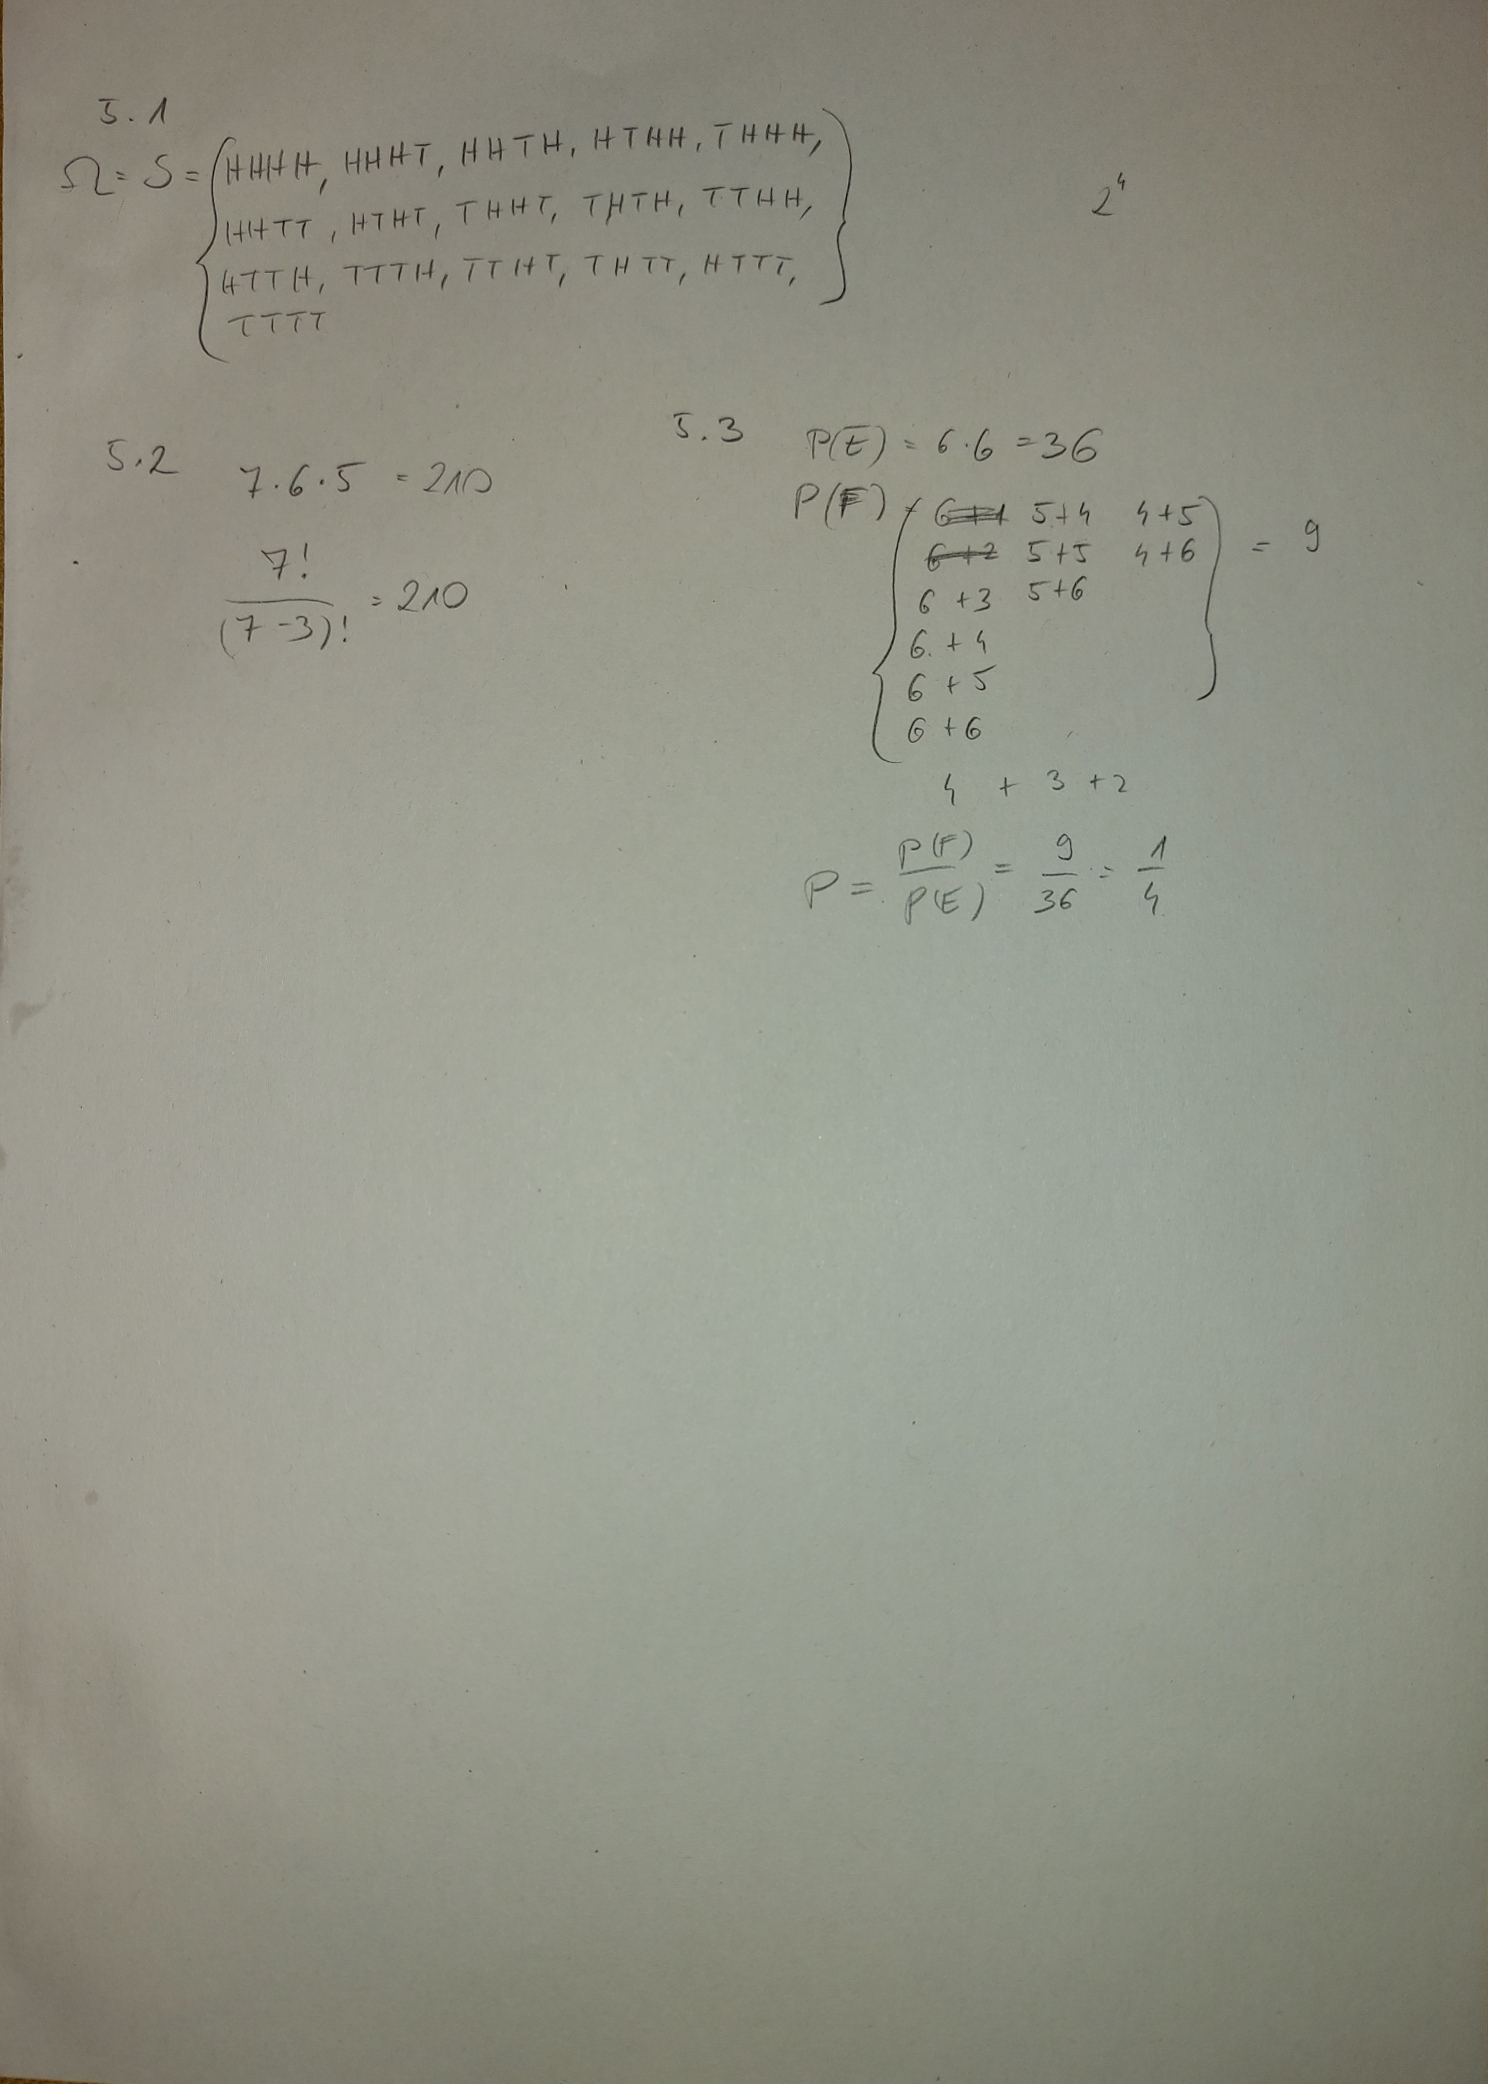 5.1
Ω = S = { HHHH, HHHT, HHTH, HTHH, THHH,
HHTT, HTHT, THHT, THTH, TTHH,
HTTH, TTTH, TTHT, THTT, HTTT,
TTTT }
2⁴
5.2
7·6·5 = 210
7!
/ (7-3)! = 210
5.3
P(E) = 6·6 = 36
P(F) = { 6+1 5+4 4+5
6+2 5+5 4+6 } = 9
6+3 5+6
6+4
6+5
6+6
4 + 3 + 2
P = P(F)/P(E) = 9/36 = 1/4